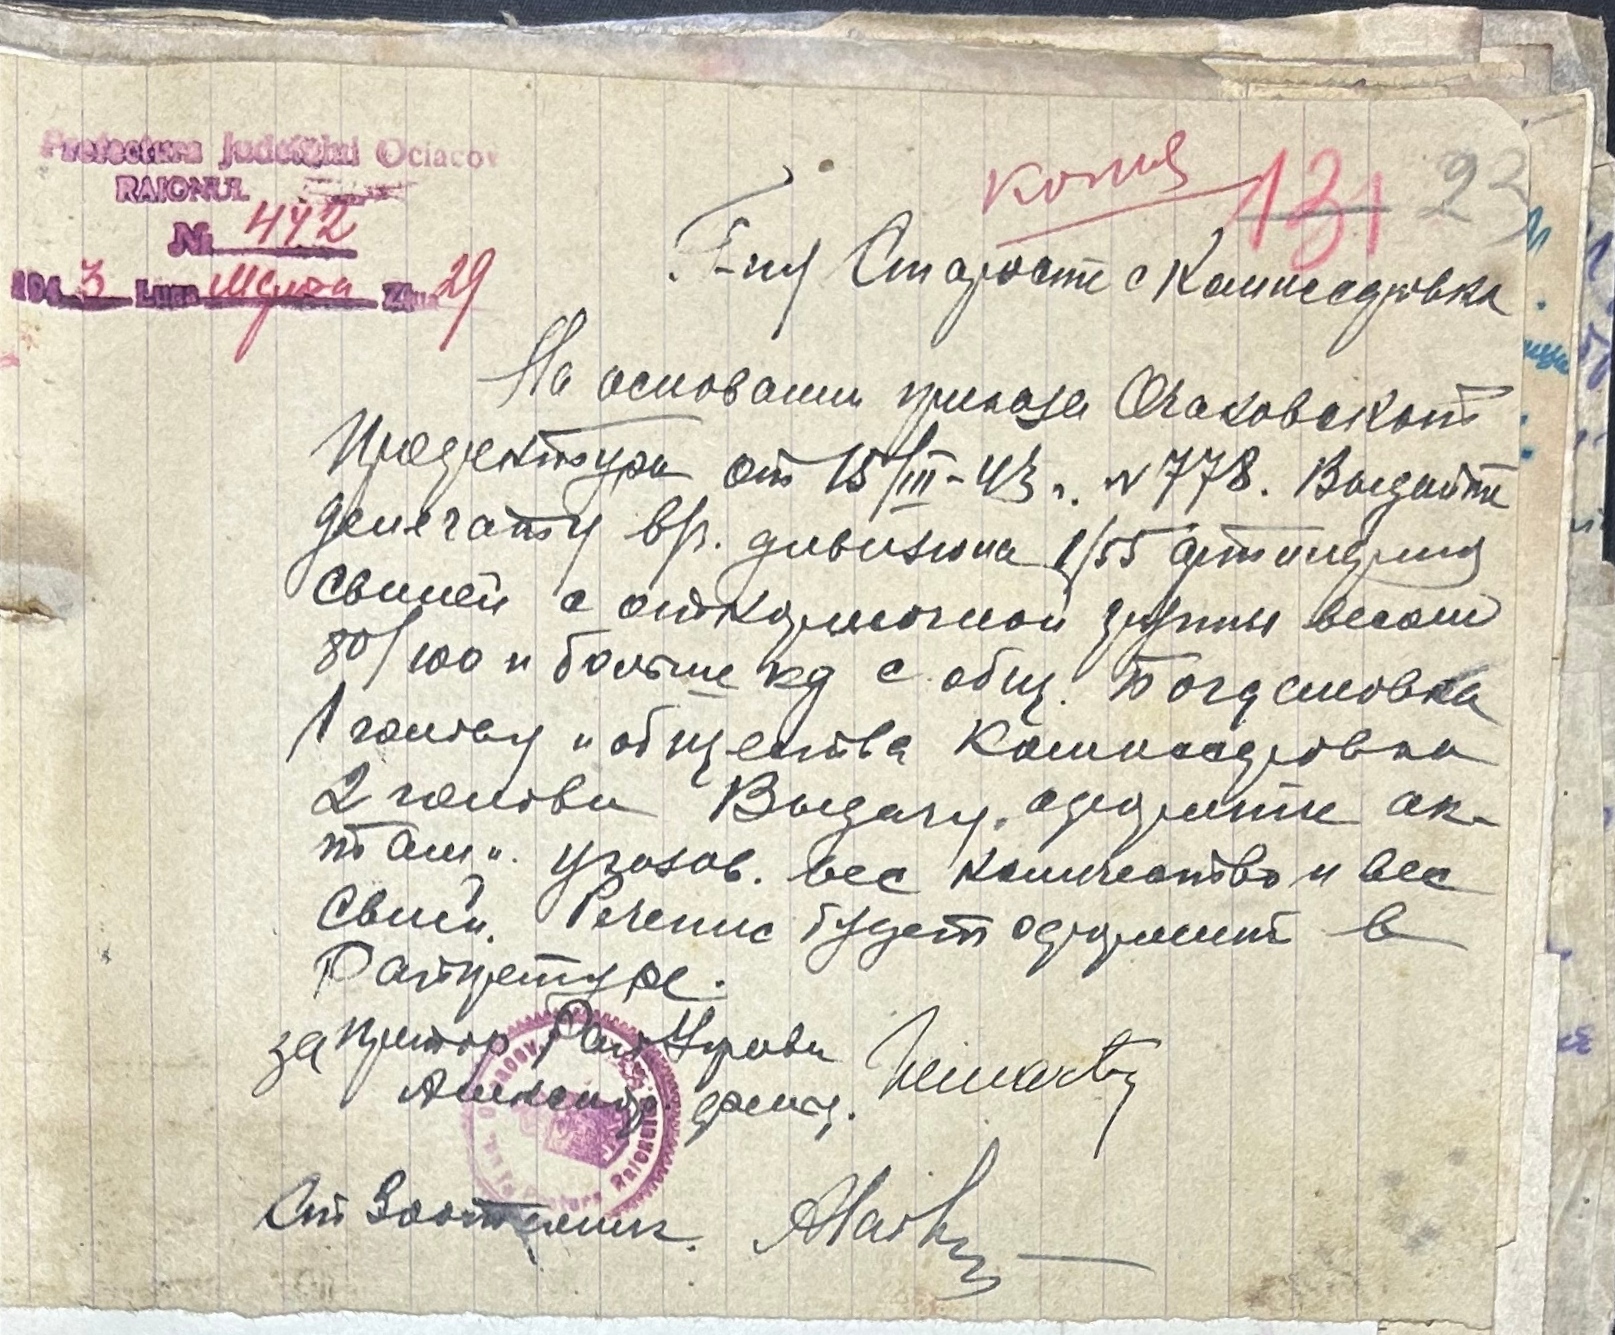 Prefectura Județului Ociacov
RAIONUL
№ 442
194 3 Luna Марта Ziua 29
копия
131 23
Г-ну Старосте с Комиссаровка
На основании приказа Очаковской
Префектуры от 15/III-43 г. № 778. Выдайте
делегату вр. дивизиона 1/55 артиллерия
свиней с откормочной группы весом
80/100 и больше кг с общ. Богдановка
1 голову и общества Комиссаровка
2 головы Выдачу оформите ак-
том указав. вес количество и вес
свиней. будет оформлен в
Райпретуре.
за претор Рай Управы
Ст Зоотехник.